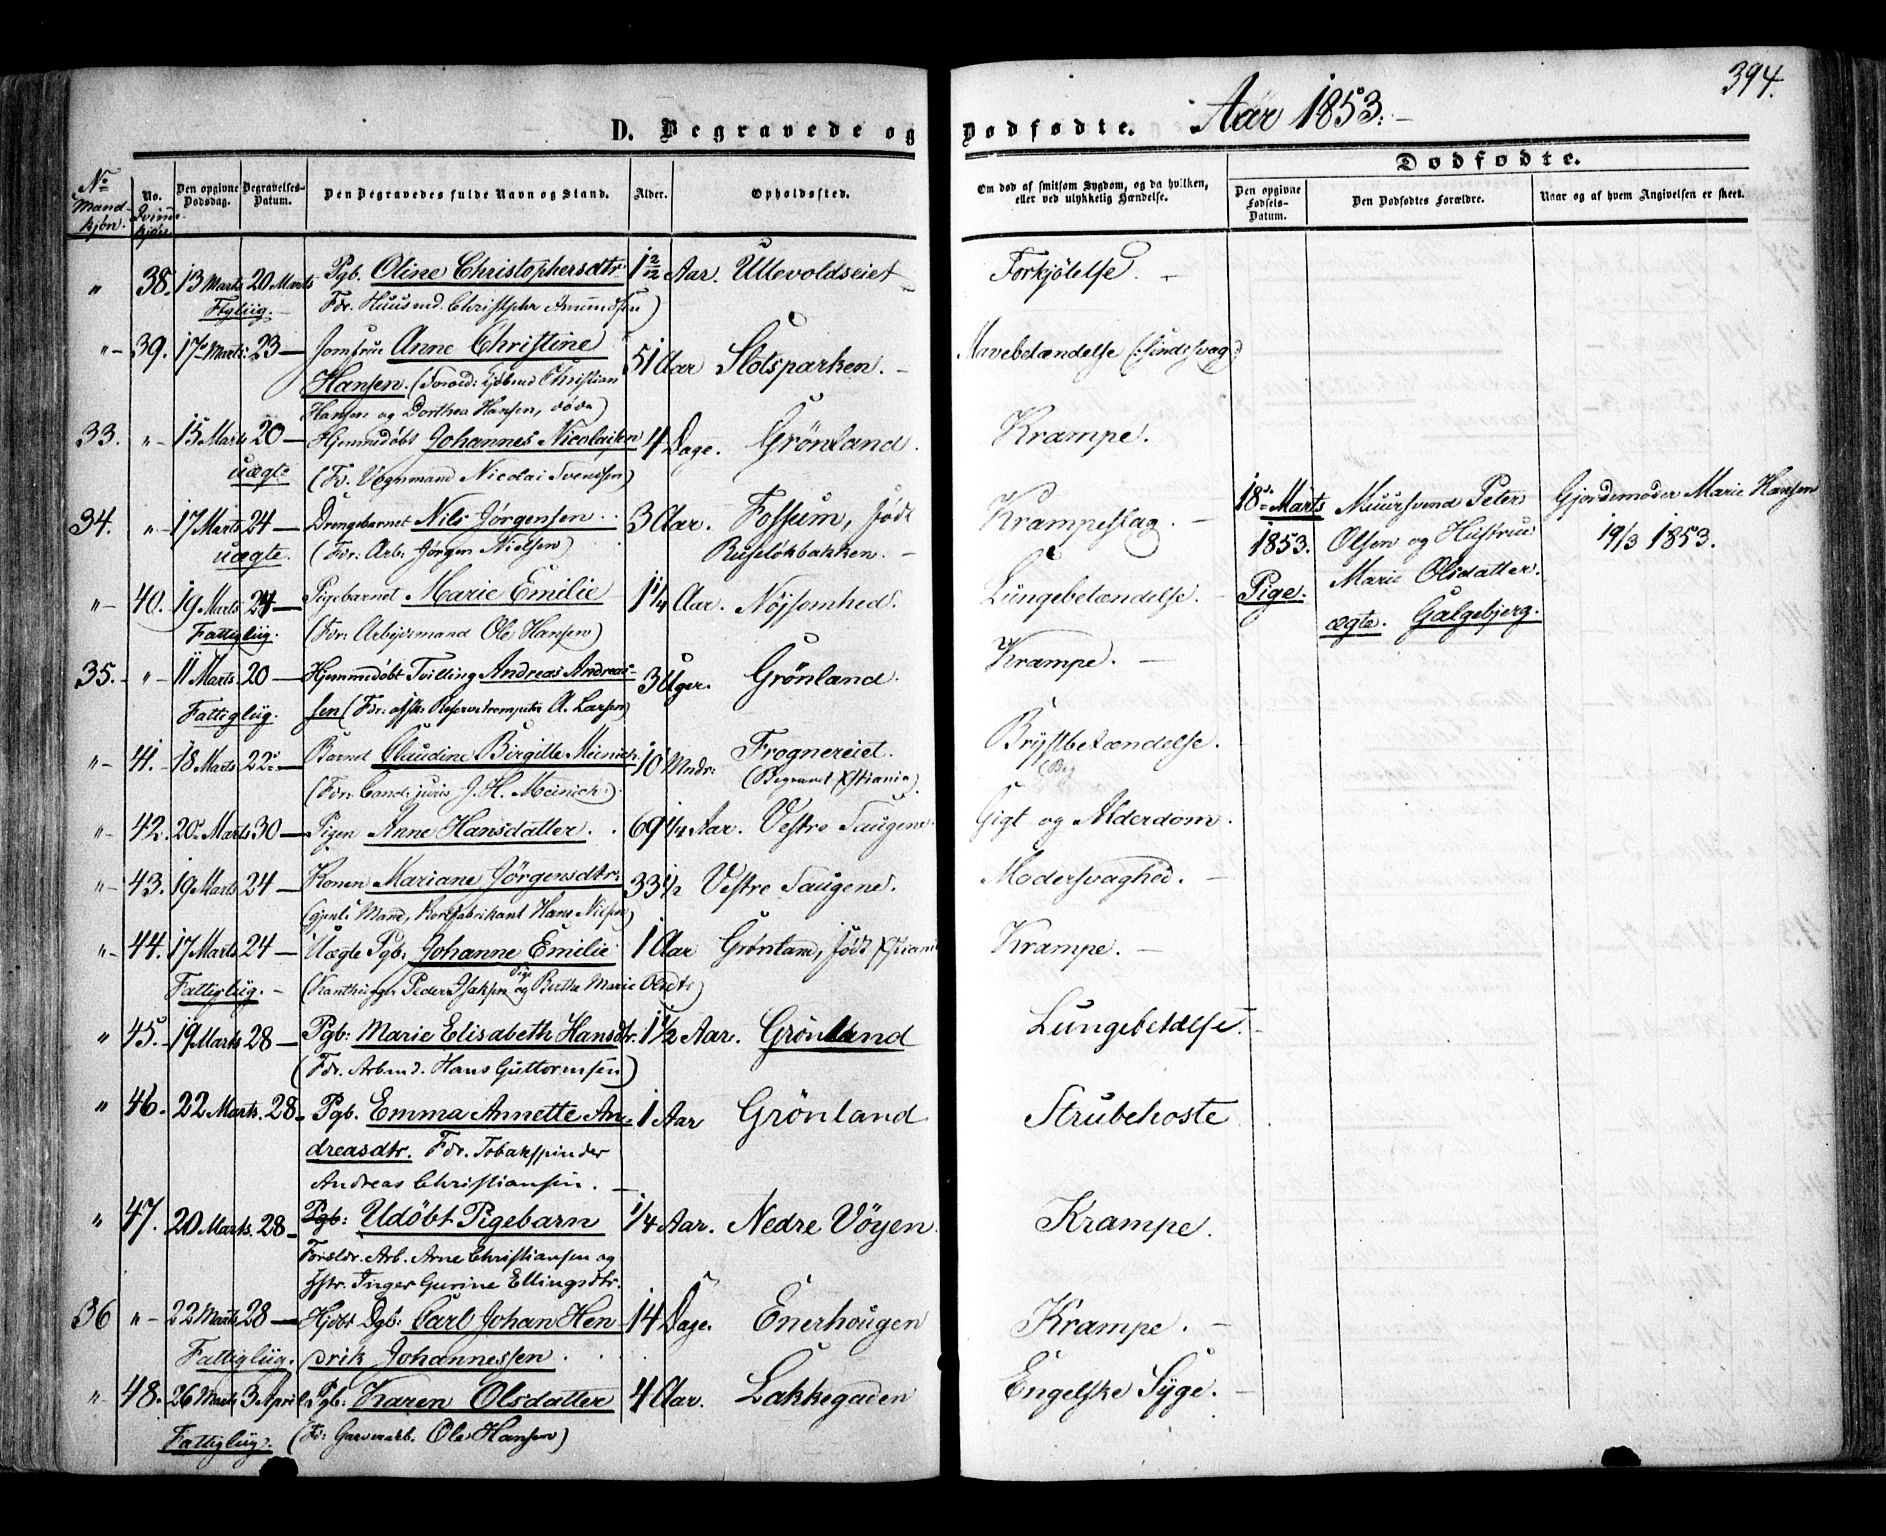 394.
D. Begravede og Dødfødte. Aar 1853.
No Mandkjøn.
No. Qvindekjøn
Den opgivne Dødsdag.
Begravelses-Datum.
Den Begravedes fulde Navn og Stand.
Alder.
Opholdssted.
Om død af smitsom Sygdom, og da hvilken, eller ved ulykkelig Hændelse.
Dødfødte.
Den opgivne Fødsels-Datum.
Den Dødfødtes Forældre.
Naar og af hvem Angivelsen er skeet.
" 38. 13 Marts 20 Marts Pgb. Oline Christophersdtr. 1 2/12 Aar. Ullevoldseiet Forkjølelse.
Ftgliig. Fdr. Huusmd. Christopher Amundsen)
" 39. 17 Marts 23 Jomfru Anne Christine 51 Aar Slotsparken. Mavebetændelse (: Sindssvag)
Hansen. Christian
Hansen og Dorthea Hansen, døde)
33. " 15 Marts 20 Hjemmedøbt Johannes Nicolaisen 4 Dage. Grönland. Krampe.
uægte (Fr. Vognmand Nicolai Svendsen)
34. " 17 Marts 24 Drengebarnet Nils Jørgensen. 3 Aar. Fossum, født Krampeslag.
uægte. (Fdr: Arb: Jørgen Nielsen) Ruseløkbakken.
18 Marts 1853. Pige.
Muursvend Peter
Olsen og Hustru
Marie Olsdatter.
ægte. Galgebjerg.
Gjordemoder Marie Hansen
19/3 1853.
" 40. 19 Marts 24 Pigebarnet Marie Emilie 1 1/4 Aar. Nøjsomhed. Lungebetændelse.
Fattigliig. (Fdr: Arbejdsmand Ole Hansen)
35. " 11 Marts 20 Hjemmedøbt Tvilling Andreas Andreas- 3 Uger. Grønland. Krampe.
Fattigliig. sen (Fdr: afsk: Reservetrompeter A. Larsen)
" 41. 18 Marts 22 Barnet Claudine Birgitte Meinich. 10 Mndr: Frognereiet. Brystbetændelse.
(Fdr: Cand: juris J. H. Meinich:) (Begravet Xstiania). (Beg
" 42. 20 Marts 30 Pigen Anne Hansdatter. 69 1/4 Aar. Vestre Saugene. Gigt og Alderdom.
" 43. 19 Marts 24 Konen Mariane Jørgensdtr: 33 1/2 Vestre Saugene. Modersvaghed.
(gjenl: Mand, Hans Nilsen)
" 44. 17 Marts 24 Uægte Pgb: Johanne Emilie 1 Aar Grønland, født Xstiania Krampe.
Fattigliig. Peder Isaksen og Pige Berthe Marie Olsdtr)
" 45. 19 Marts 28 Pgb: Marie Elisabeth Hansdtr. 1 1/2 Aar. Grönland Lungebetdlse.
(Fdr. Arbmd. Hans Guttormsen)
" 46. 22 Marts. 28 Pgb. Emma Annette An- 1 Aar Grönland Strubehoste
dreasdtr. Fdr. Tobakspinder
Andreas Christiansen.
" 47. 20 Marts. 28 Pgb: Udöbt Pigebarn 1/4 Aar. Nedre Vöyen. Krampe.
Foreldr. Arb. Arne Christiansen og
Hstr. Inger Gurine Ellingsdtr.
36 " 22 Marts 28 Hjdbt Dgb: Carl Johan Hen 14 Dage. Enerhougen Krampe.
Fattigliig. drik Johannessen.
" 48. 26 Marts 3 April Pgb: Karen Olsdatter 4 Aar. Lakkegaden Engelske Syge.
Fattigliig. (Fdr: Garverarb. Ole Hansen)